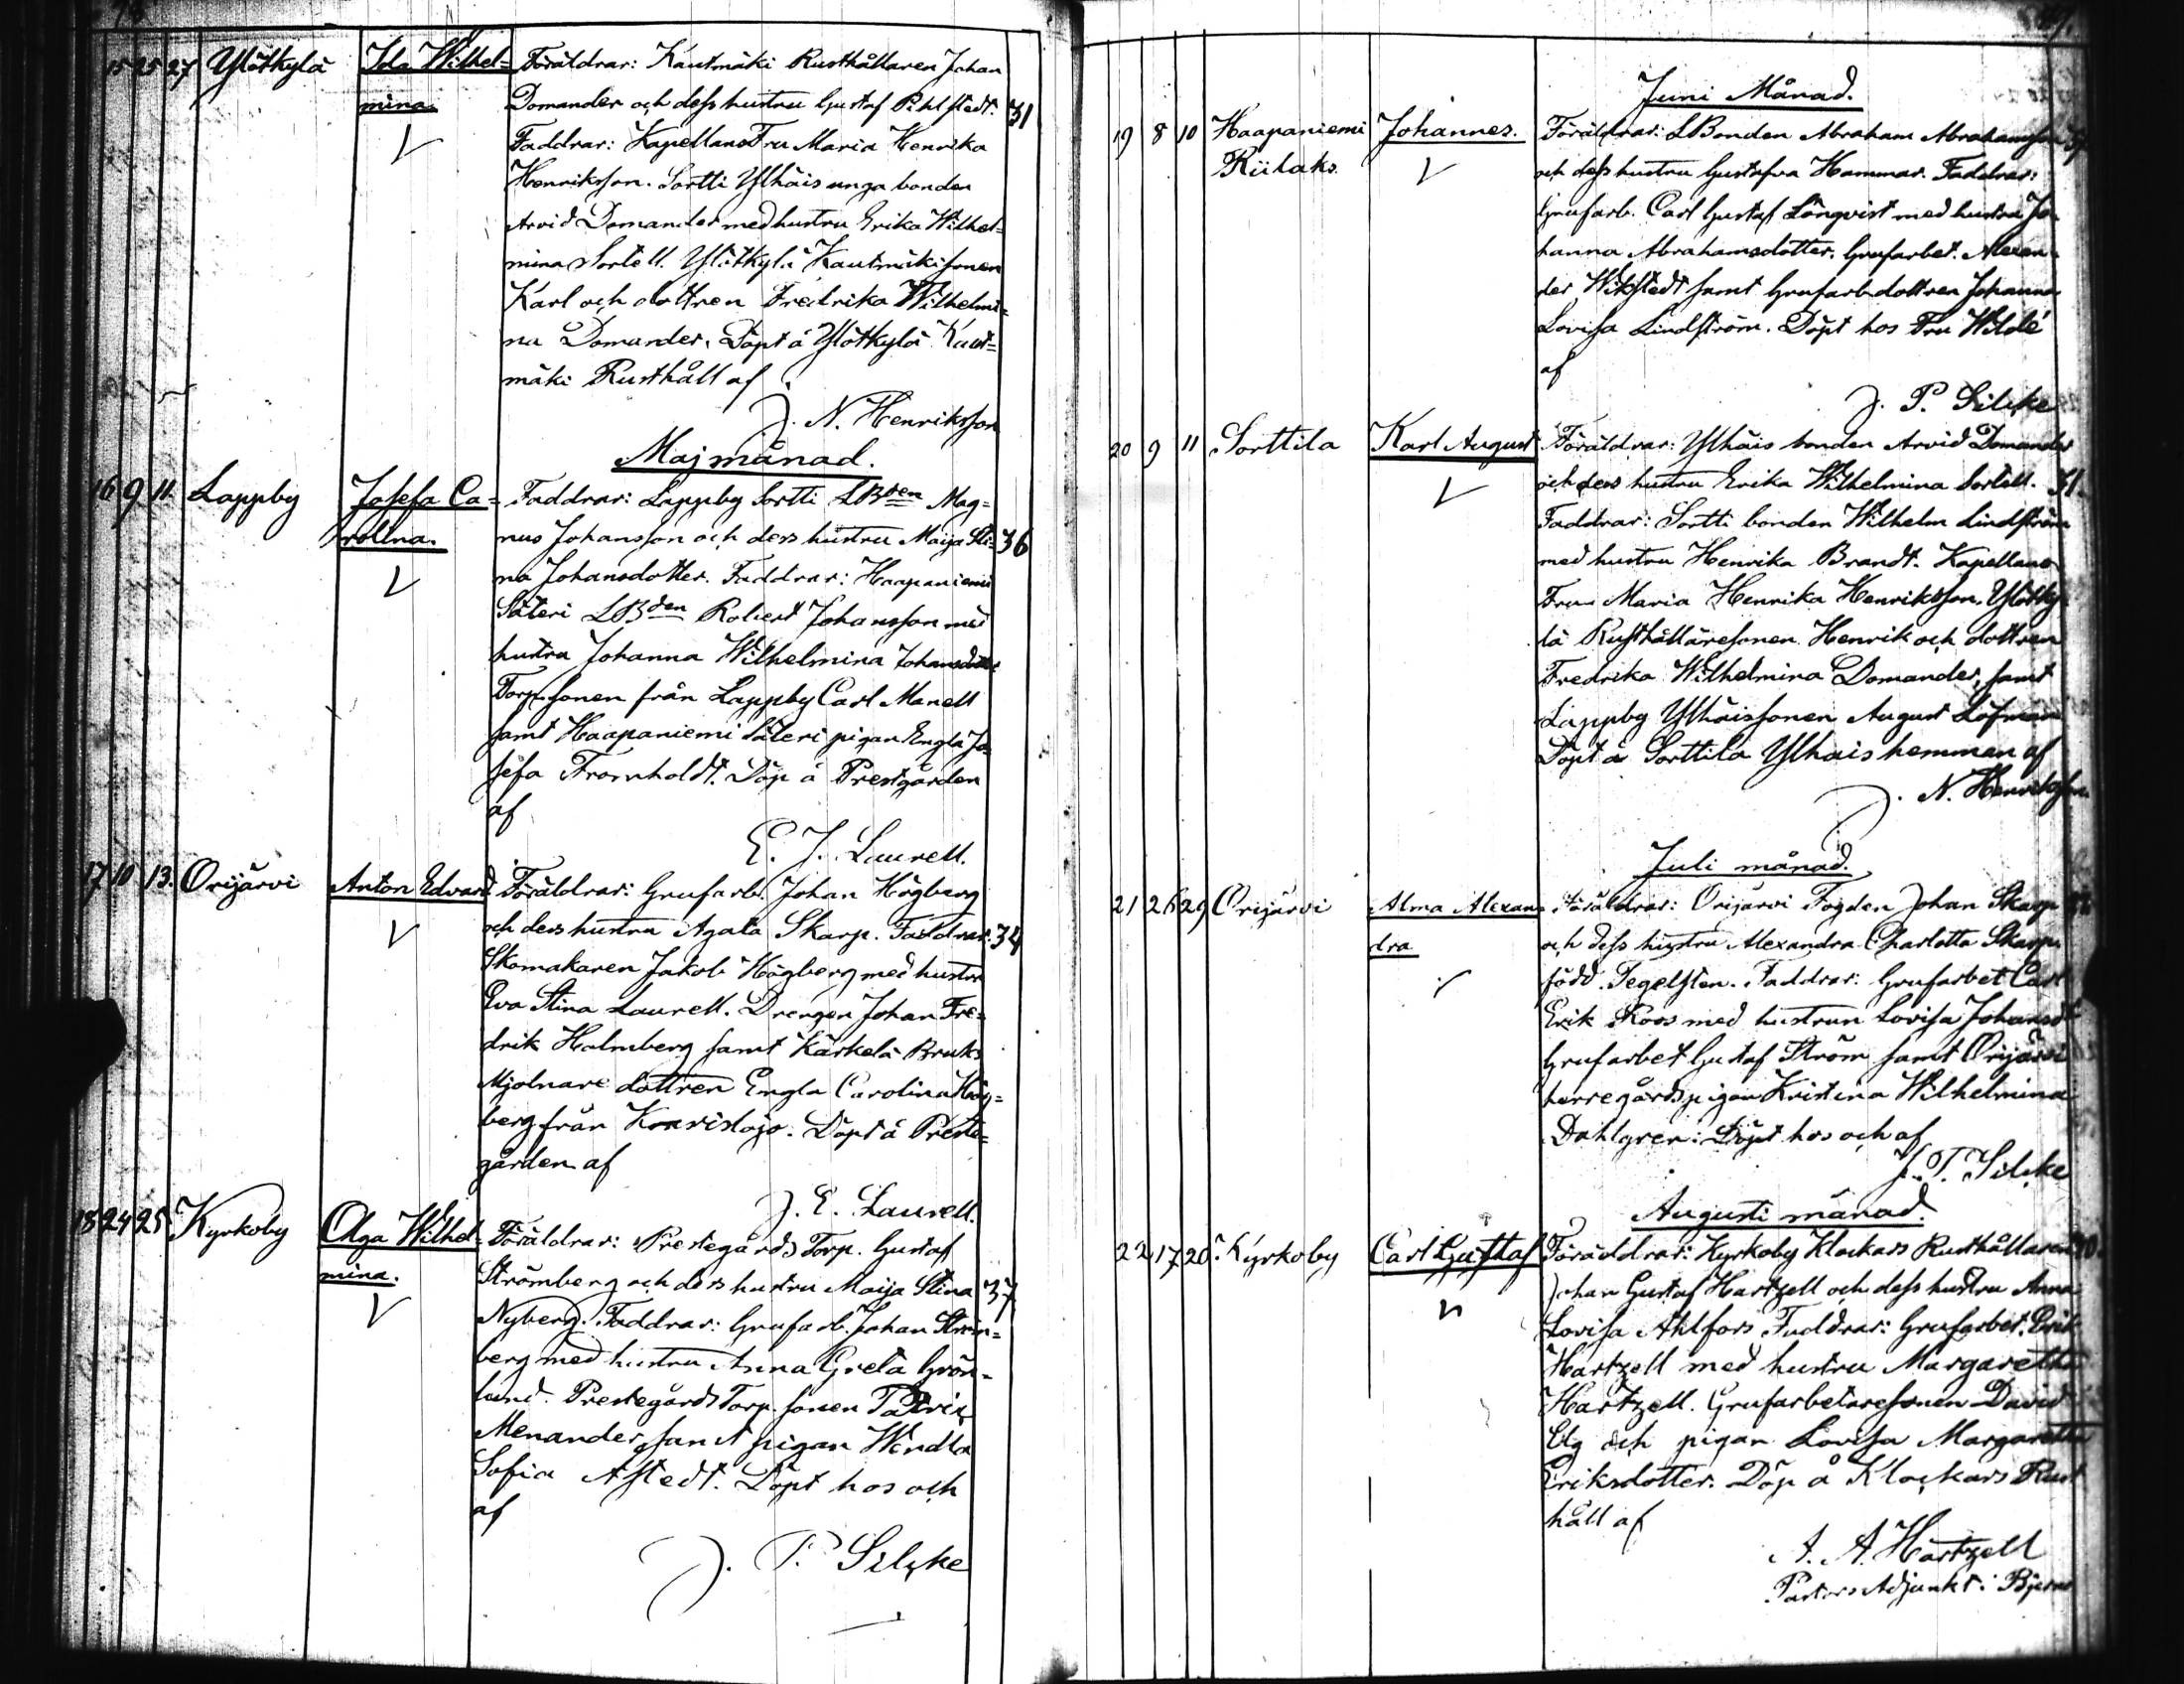 15 25 27 Ylötkylä Ida Wilhel= Föräldrar: Kautmäki Rusthållaren Johan
mina. Domander och dess hustru Gustaf Pihlstedt. 31
Faddrar: Kapellans Fru Maria Henrika
Henriksson. Sortti Ylhäis unga bonden
Arvid Domander med hustru Erika Wilhel=
mina Sortell. Ylötkylä Kautmäki sonen
Karl och dottren Fredrika Wilhelmi=
na Domander. Döpt å Ylötkylä Kaut=
mäki Rusthåll af
J. N. Henriksson
Maj månad.
16 9 11. Lappby Josefa Ca= Faddrar: Lappby Sortti LBden Mag=
rolina. nus Johansson och dess hustru Maija Sti= 36
na Johansdotter. Faddrar: Haapaniemi
Säteri LBden Robert Johansson med
hustru Johanna Wilhelmina Johansdotter
Torp. sonen från Lappby Carl Manell
samt Haapaniemi Säteri pigan Engla Jo=
sefa Fromholdt. Döp å Prestgården
af
E. J. Laurell.
17 10 13. Orijärvi Anton Edvard Föräldrar: Grufarb. Johan Högberg
och dess hustru Agata Skarp. Faddrar: 34
Skomakaren Jakob Högberg med hustru
Eva Stina Laurell. Drengen Johan Fre=
drik Holmberg samt Kärkelä Bruks
Mjolnare dottren Engla Carolina Hög=
berg från Karislojo. Döpt å Preste=
gården af
J. E. Laurell.
18 24 25 Kyrkoby Olga Wilhel= Föräldrar: Prestegårds Torp. Gustaf
mina. Strömberg och dess hustru Maija Stina 37
Nyberg. Faddrar: Grufarb. Johan Ström=
berg med hustru Anna Greta Grön=
lund. Prestegårds Torp. sonen Patrik
Menander samt pigan Wendla
Sofia Astedt. Döpt hos och
af
J. P. Silcke
Juni Månad.
19 8 10 Haapaniemi Johannes. Föräldrar: LBonden Abraham Abrahamsson
Riihaks. och dess hustru Gustafva Hammar. Faddrar:
Grufarb. Carl Gustaf Lönqvist med hustru Jo=
hanna Abrahamsdotter. Grufarbet. Alexan=
der Wikstedt samt Grufarb. dottren Johanna
Lovisa Lindström. Döpt hos Fru Wildé
af
J. P. Silcke
20 9 11 Sorttila Karl August Föräldrar: Ylhäis bonden Arvid Domander
och dess hustru Erika Wilhelmina Sortell. 31.
Faddrar: Sortti bonden Wilhelm Lindström
med hustru Henrika Brandt. Kapellans
Fru Maria Henrika Henriksson. Ylötky=
lä Rusthållaresonen Henrik och dottren
Fredrika Wilhelmina Domander, samt
Lappby Ylhäissonen August Löfman
Döpt å Sorttila Ylhäis hemman af
J. N. Henriksson
Juli månad.
21 26 29 Orijärvi Alma Alexan= Föräldrar: Orijärvi Fogden Johan Skarp
dra och dess hustru Alexandra Charlotta Skarp
född Tegelsten. Faddrar: Grufarbet Carl
Erik Roos med hustrun Lovisa Johansdt
Grufarbet Gustaf Ström samt Orijärvi
herregårdspigan Kristina Wilhelmina
Dahlgren: Döpt hos och af
J. P. Silcke
Augusti månad.
22 17 20. Kyrkoby Carl Gustaf Föräldrar: Kyrkoby Klockars Rusthållaren
Johan Gustaf Hartzell och dess hustru Anna
Lovisa Ahlfors Faddrar: Grufarbet. Erik
Hartzell med hustru Margaretha
Hartzell. Grufarbetaresonen David
Elg och pigan Lovisa Margaretha
Eriksdotter. Döp å Klockars Rust
håll af
A. A. Hartzell
Pastors Adjunkt i